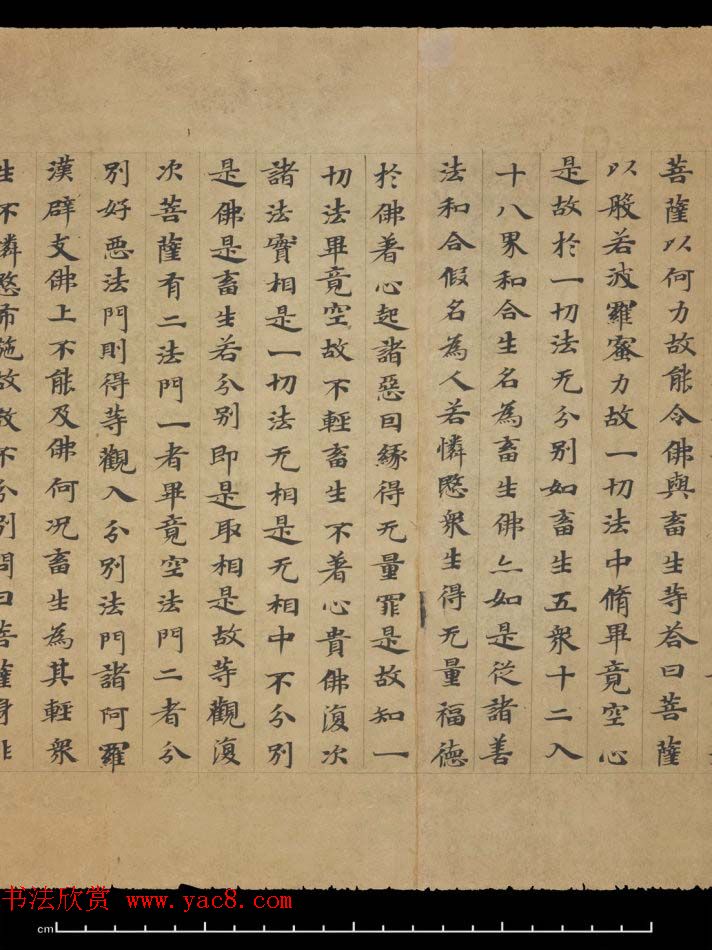 菩薩以何力故能令佛與畜生等荅曰菩薩
以般若波羅蜜力故一切法中脩畢竟空心
是故於一切法无分别如畜生五衆十二入
十八界和合生名為畜生佛亦如是従諸善
法和合假名為人若憐愍衆生得无量福德
於佛著心起諸惡因緣得无量罪是故知一
切法畢竟空故不輕畜生不著心貴佛復次
諸法實相是一切法无相是无相中不分別
是佛是畜生若分別即是取相是故等觀復
次菩薩有二法門一者畢竟空法門二者分
別好惡法門則得等觀入分別法門諸阿羅
漢辟支佛上不能及佛何况畜生為其輕衆
生不憐愍布施故教不分別問曰菩薩身非
书法欣赏 www.yac8.com
cm